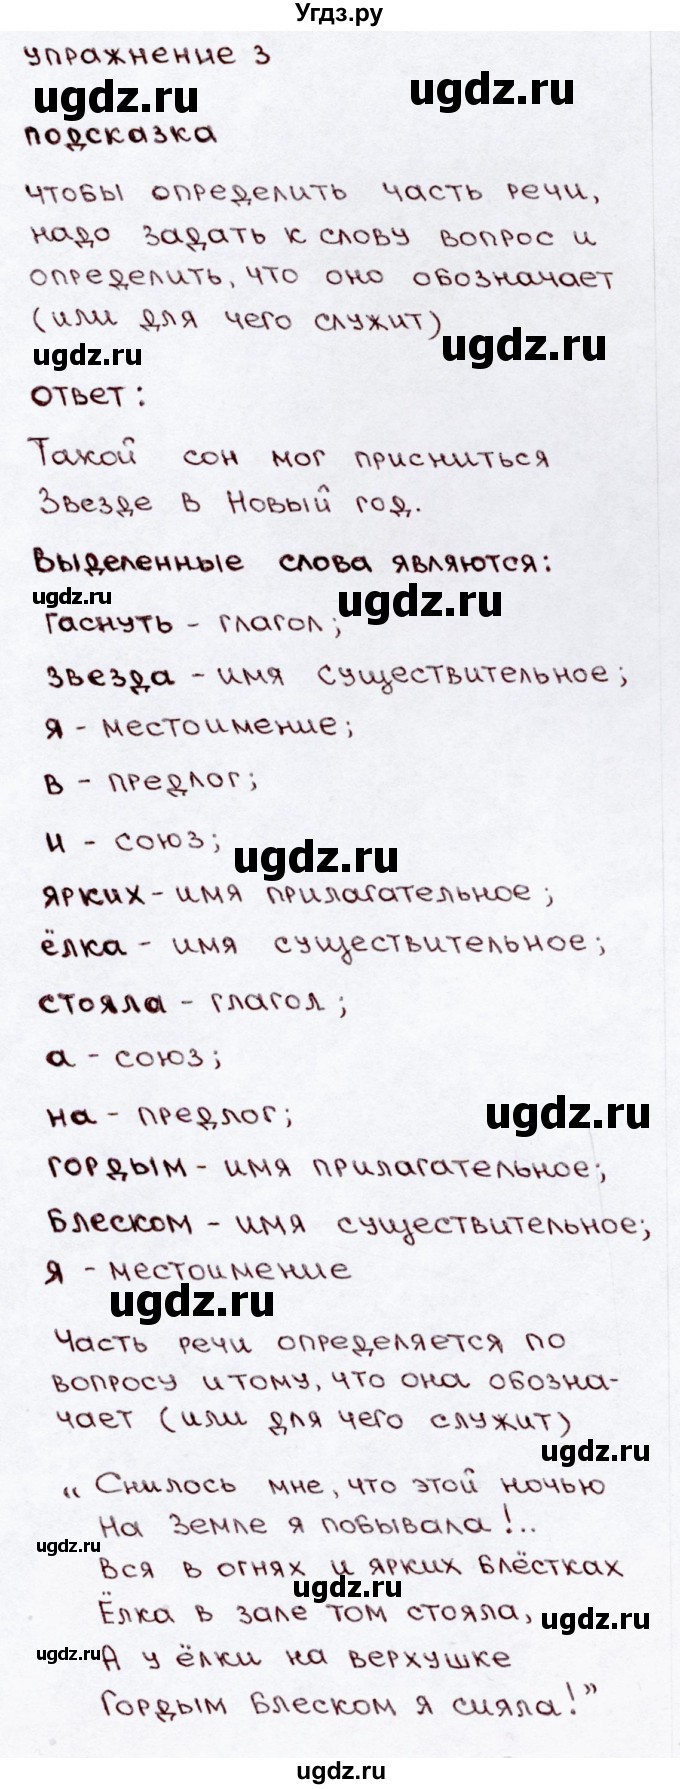 Угдз.ру
упражнение 3
ugdz.ru ugdz.ru
подсказка
чтобы определить часть речи,
надо задать к слову вопрос и
определить, что оно обозначает
(или для чего служит)
ugdz.ru ugdz.ru
ответ:
Такой сон мог присниться
Звезде в Новый год.
Выделенные слова являются:
ugdz.ru ugdz.ru
гаснуть - глагол;
звезда - имя существительное;
я - местоимение;
в - предлог;
и - союз;
ugdz.ru
ярких - имя прилагательное;
ёлка - имя существительное;
стояла - глагол;
а - союз;
ugdz.ru
на - предлог;
гордым - имя прилагательное;
блеском - имя существительное;
я - местоимение
ugdz.ru
Часть речи определяется по
вопросу и тому, что она обозна-
чает (или для чего служит)
ugdz.ru
„Снилось мне, что этой ночью
На Земле я побывала!..
ugdz.ru
Вся в огнях и ярких блёстках
ugdz.ru
Ёлка в зале том стояла,
ugdz.ru
ugdz.ru
А у ёлки на верхушке
Гордым блеском я сияла!”
ugdz.ru